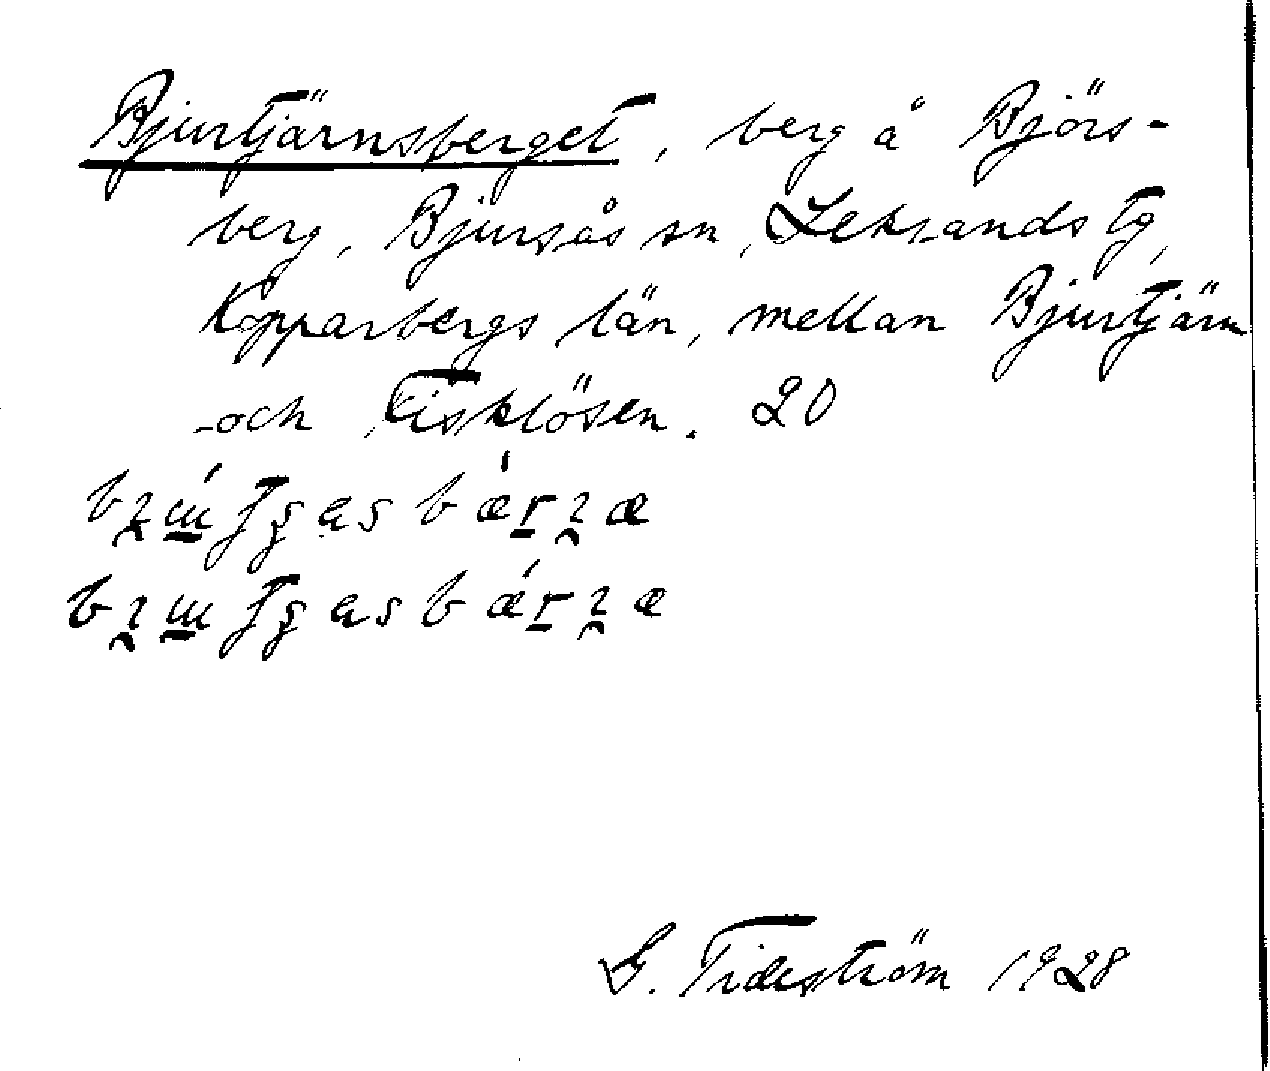 Bjurtjärnsberget, berg å Björs-
berg, Bjursås sn, Leksands tg,
Kopparbergs län, mellan Bjurtjärn
och Fisklösen. 20
G. Tideström 1928